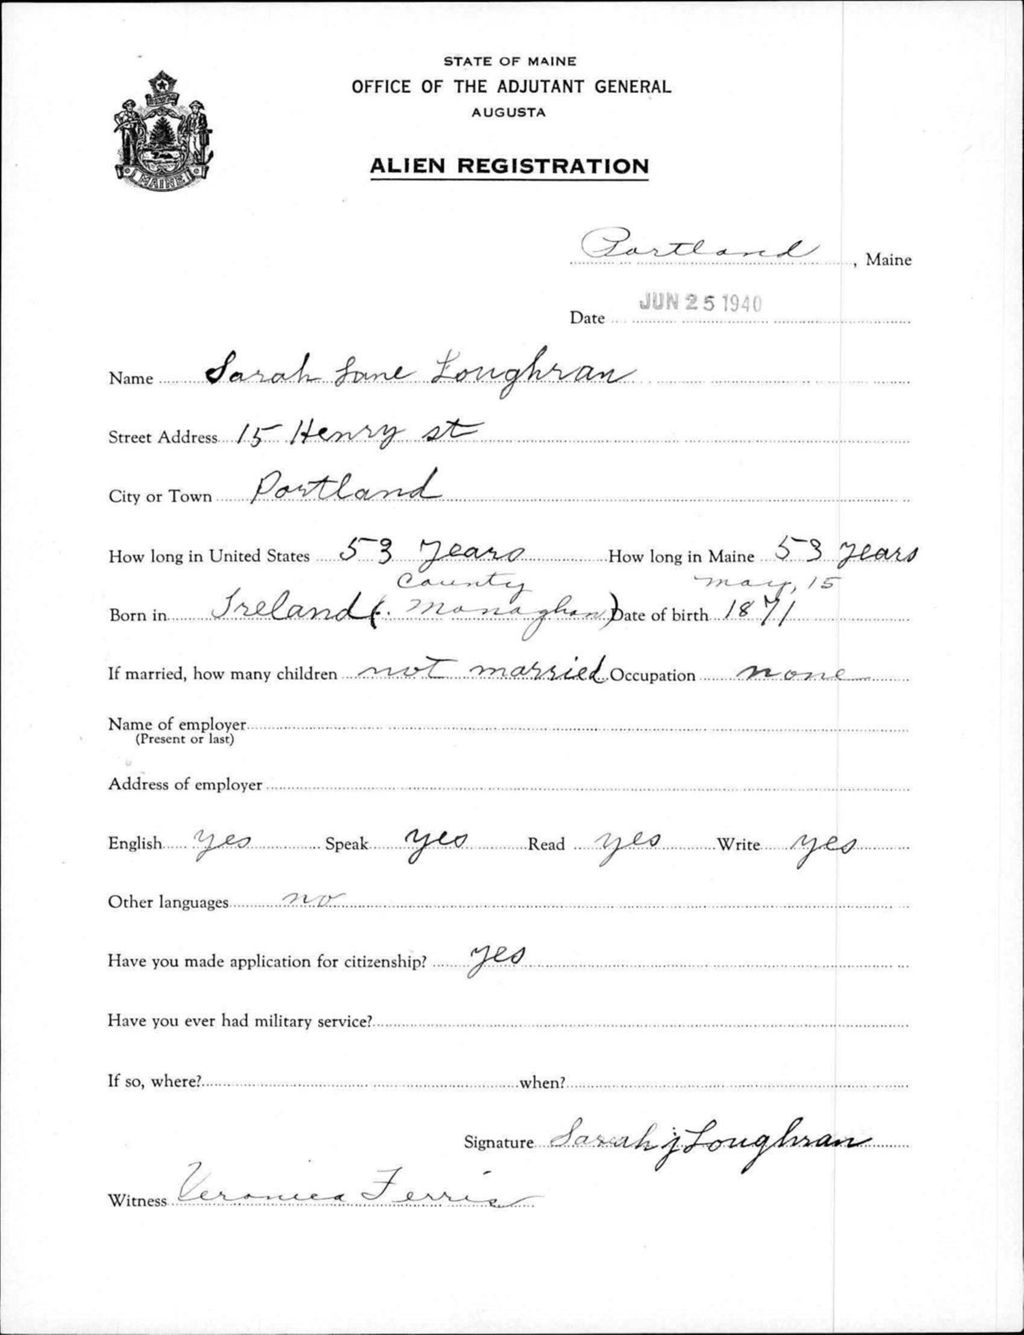 STATE OF MAINE
OFFICE OF THE ADJUTANT GENERAL
AUGUSTA
ALIEN REGISTRATION
MAINE
Portland, Maine
Date JUN 25 1940
Name Sarah Jane Loughran
Street Address 15 Henry st
City or Town Portland
How long in United States 53 years How long in Maine 53 years
County May, 15
Born in Ireland (Monaghan) Date of birth 1871
If married, how many children not married Occupation none
Name of employer
(Present or last)
Address of employer
English yes Speak yes Read yes Write yes
Other languages no
Have you made application for citizenship? yes
Have you ever had military service?
If so, where? when?
Signature Sarah J Loughran
Witness Veronica Ferris